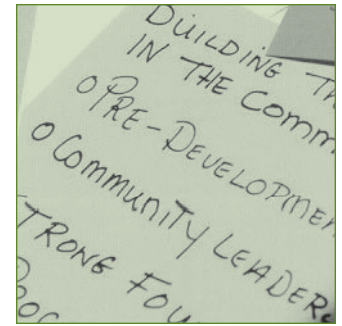 BUILDING TH
IN THE COMM
O PRE-DEVELOPMEN
O COMMUNITY LEADERS
TRONG FOU